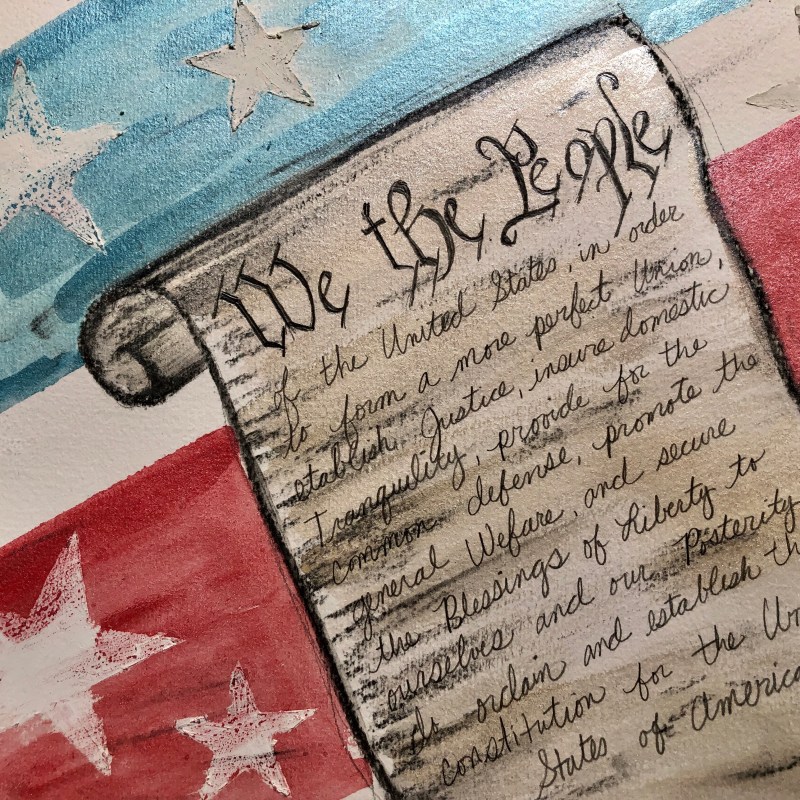 We the People
of the United States, in order
to form a more perfect Union,
establish Justice, insure domestic
Tranquility, provide for the
common defense, promote the
general Welfare, and secure
the Blessings of Liberty to
ourselves and our Posterity
do ordain and establish th
constitution for the Un
States of America